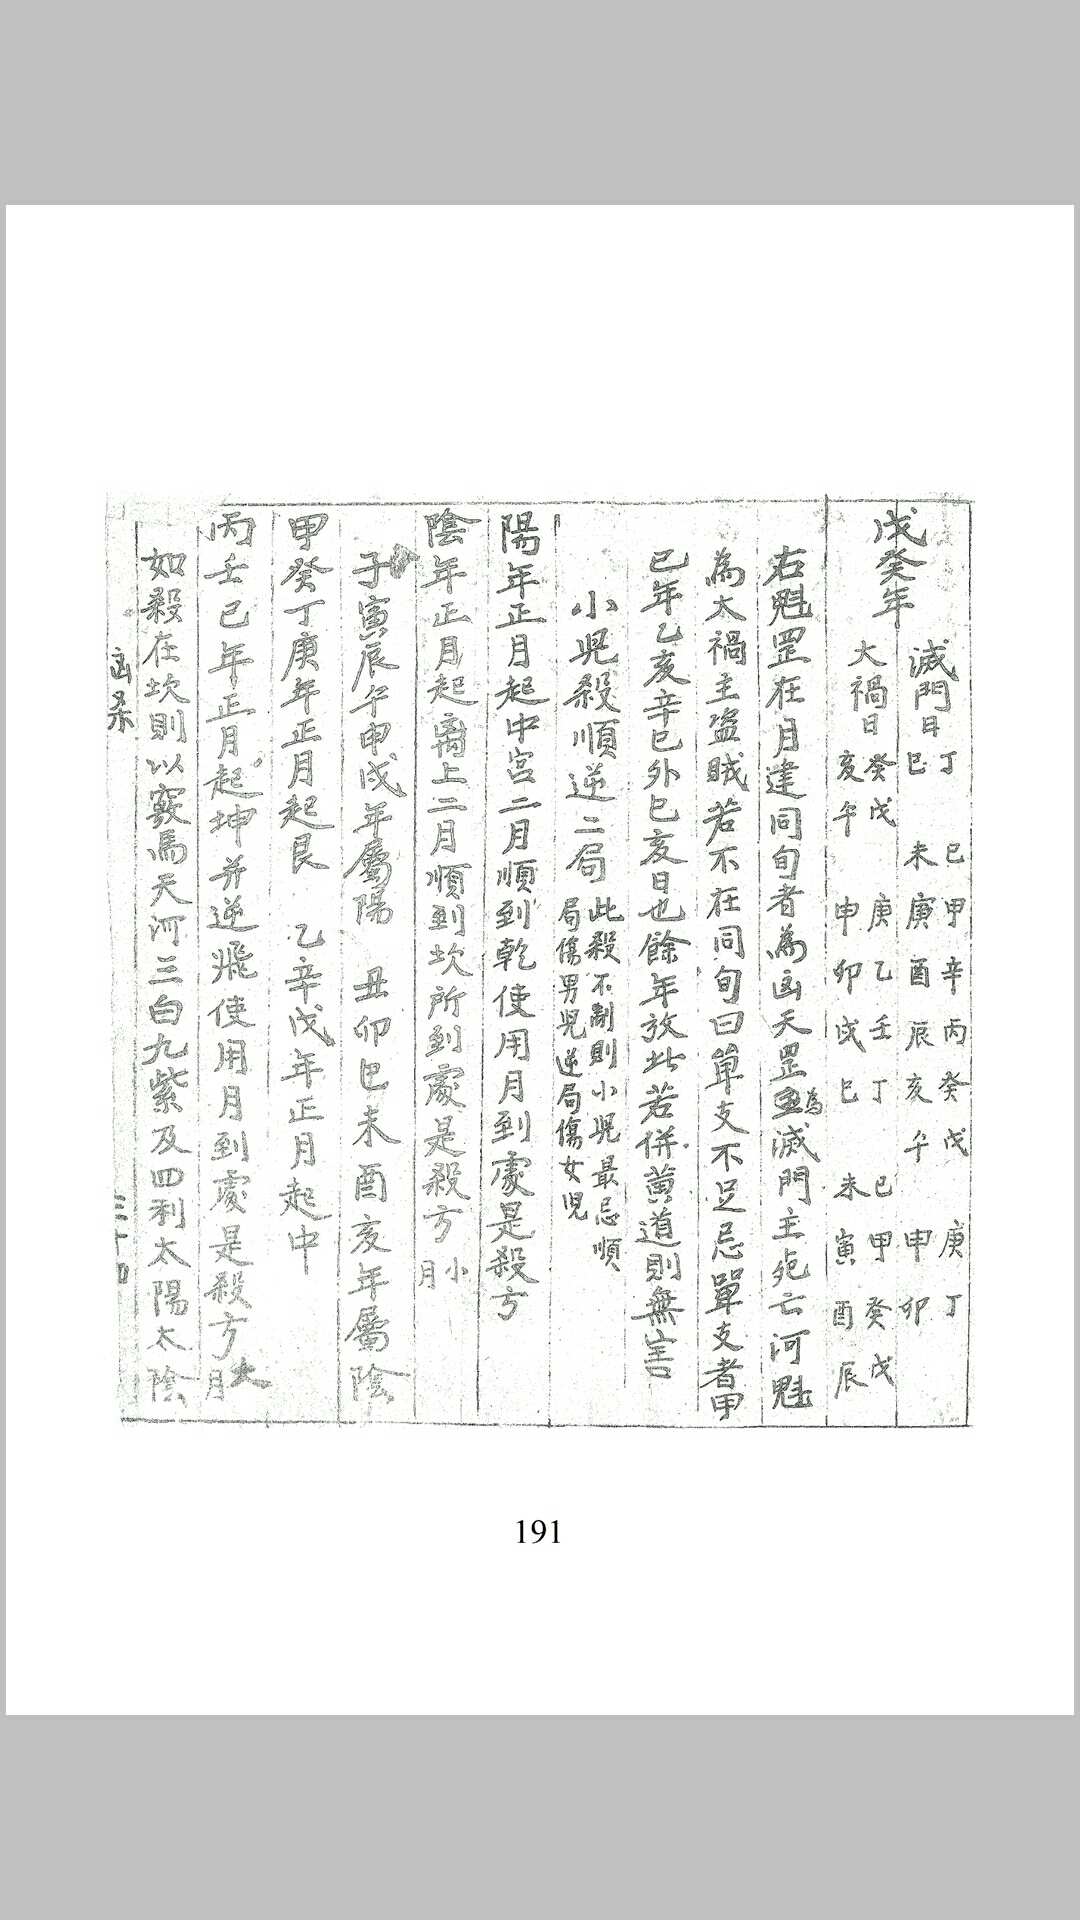 戊癸年
滅門日 丁巳 己未 甲庚 辛酉 丙辰 癸亥 戊午 庚申 丁卯
大禍日 癸亥 戊午 庚申 乙卯 壬戌 丁巳 己未 甲寅 癸酉 戊辰
右魁罡在月建同旬者為凶天罡為滅門主死亡河魁
為大禍主盜賊若不在同旬曰單支不足忌單支者甲
己年乙亥辛巳外巳亥日也餘年放此若併黄道則無害
小児殺順逆二局 此殺不制則小児最忌順
局傷男児逆局傷女児
陽年正月起中宮二月順到乾使用月到處是殺方
陰年正月起离上二月順到坎所到處是殺方 小月
子寅辰午申戌年屬陽 丑卯巳未酉亥年屬陰
甲癸丁庚年正月起艮 乙辛戊年正月起中
丙壬己年正月起坤并逆飛使用月到處是殺方 大月
如殺在坎則以竅馬天河三白九紫及四利太陽太陰
凶殺
191